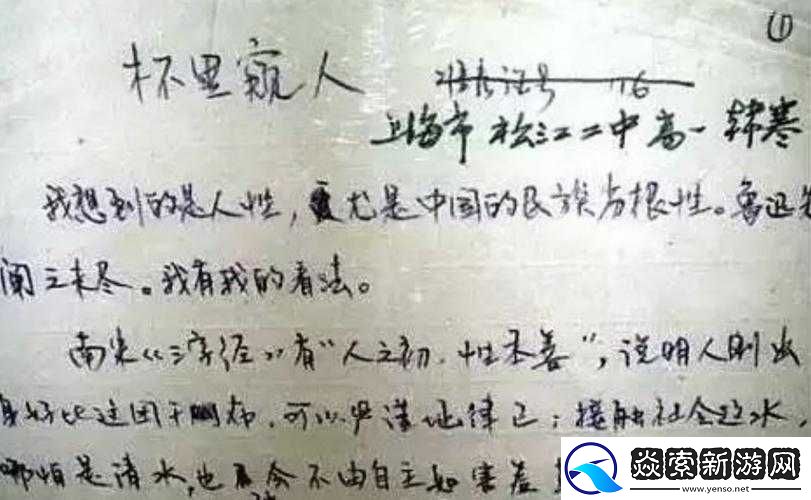 ①
杯里窥人
准考证号 16
上海市 松江二中 高一 韩寒
我想到的是人性，尤是中国的民族劣根性。鲁迅先
阐之未尽。我有我的看法。
南宋《三字经》有“人之初，性本善”，说明人刚出
身好比这团干布，可以严谨地律己；接触社会这水，
哪怕是清水，也会不由自主如害羞
焱索新游网
www.yenso.net